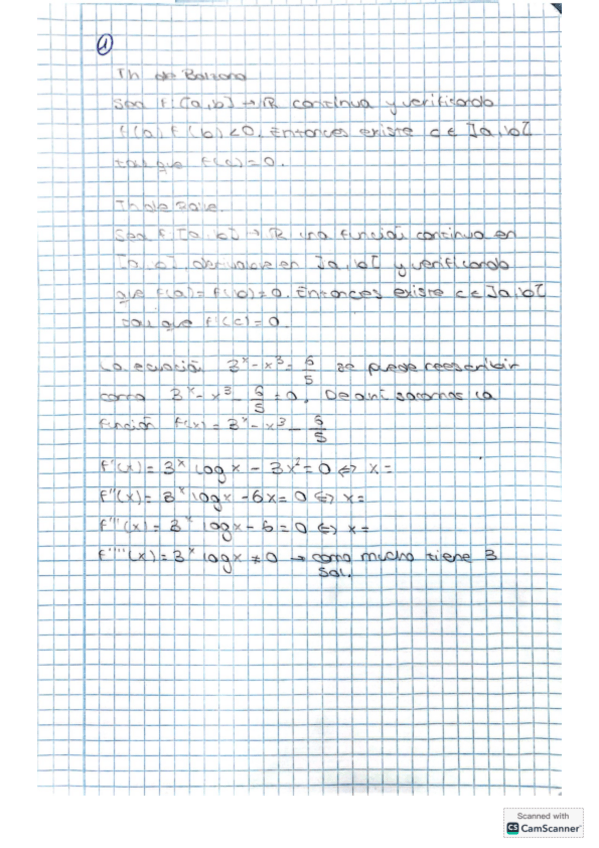 ①
Th de Bolzano
Sea f: [a,b] → ℝ continua y verificando
f(a) f(b) < 0. Entonces existe c ∈ ]a,b[
tal que f(c) = 0.
Th de Rolle.
Sea f: [a, b] → ℝ una función continua en
[a,b], derivable en ]a,b[ y verificando
que f(a) = f(b) = 0. Entonces existe c ∈ ]a,b[
tal que f'(c) = 0
La ecuación 3^x - x^3 = 6/5 se puede reescribir
como 3^x - x^3 - 6/5 = 0. De ahí sacamos la
función f(x) = 3^x - x^3 - 6/5
f'(x) = 3^x log x - 3x^2 = 0 ⇔ x =
f''(x) = 3^x log x - 6x = 0 ⇔ x =
f'''(x) = 3^x log x - 6 = 0 ⇔ x =
f''''(x) = 3^x log x ≠ 0 → como mucho tiene 3
sol.
Scanned with
CS CamScanner